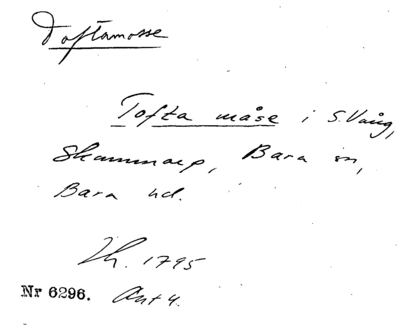 Toftamosse
Tofta måse i S. Vång,
Skammarp, Bara sn,
Bara hd.
Lh. 1795
Nr 6296. Akt 4.